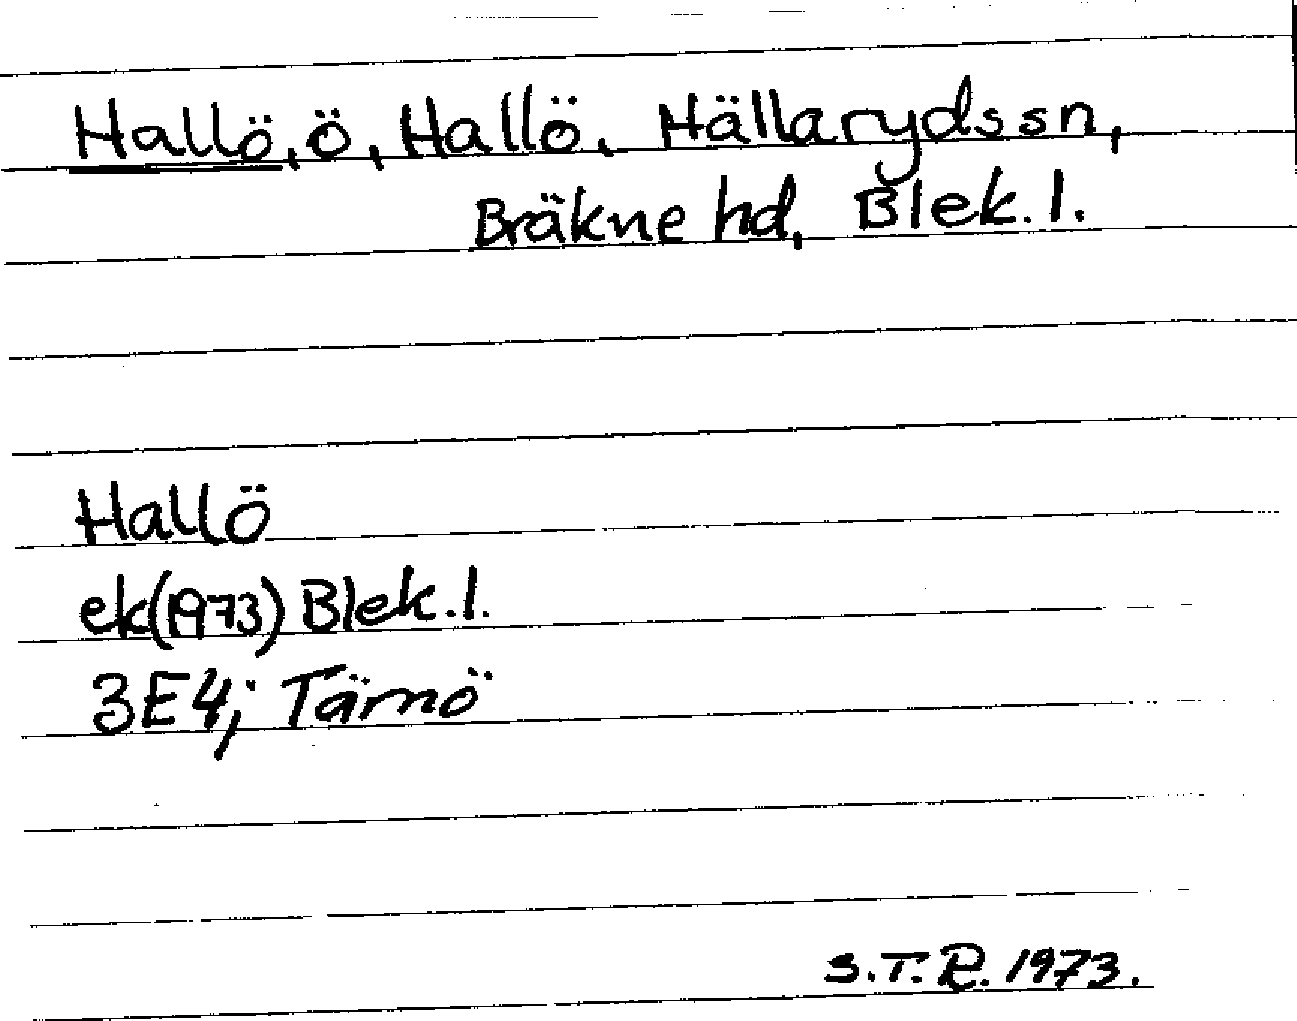 Hallö, ö, Hallö, Hällaryds sn,
Bräkne hd, Blek. l.
Hallö
ek (1973) Blek. l.
3E4; Tärnö
S.T.R. 1973.